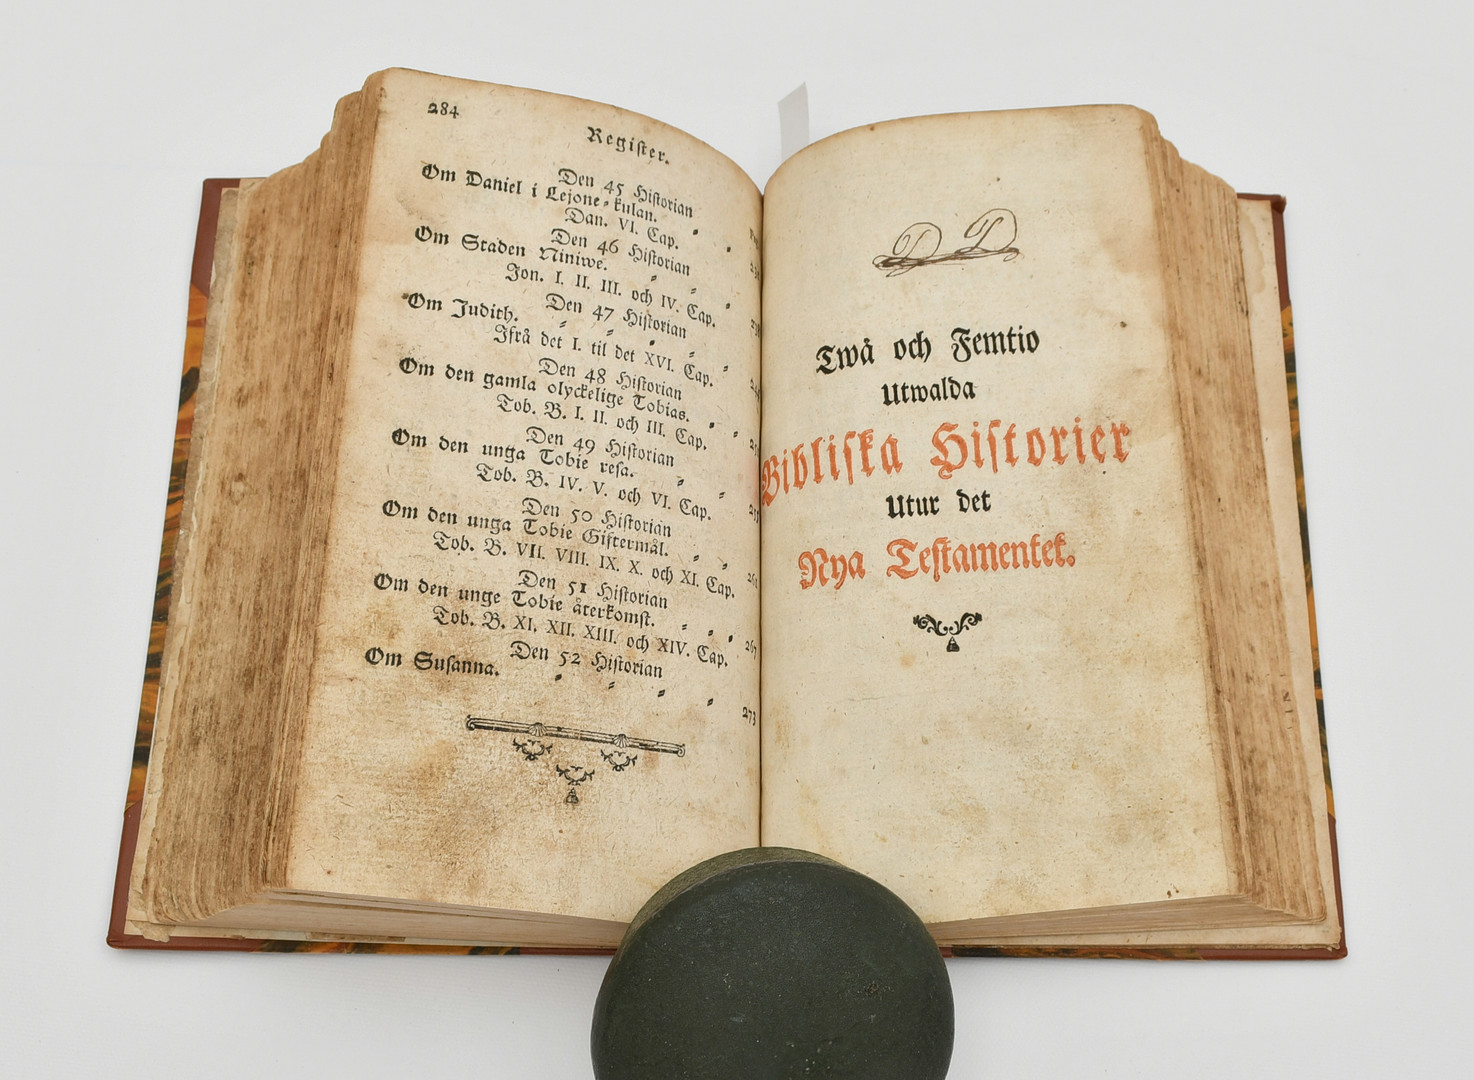 284
Register.
Den 45 Historian
Om Daniel i Lejone-kulan.
Dan. VI. Cap.
Den 46 Historian
Om Staden Niniwe.
Jon. I. II. III. och IV. Cap.
Den 47 Historian
Om Judith.
Ifrå det I. til det XVI. Cap.
Den 48 Historian
Om den gamla olyckelige Tobias.
Tob. B. I. II. och III. Cap.
Den 49 Historian
Om den unga Tobie resa.
Tob. B. IV. V. och VI. Cap.
Den 50 Historian
Om den unga Tobie Giftermål.
Tob. B. VII. VIII. IX. X. och XI. Cap.
Den 51 Historian
Om den unge Tobie återkomst. 267
Tob. B. XI. XII. XIII. och XIV. Cap.
Den 52 Historian
Om Susanna. 273
D D
Twå och Femtio
Utwalda
Bibliska Historier
Utur det
Nya Testamentet.